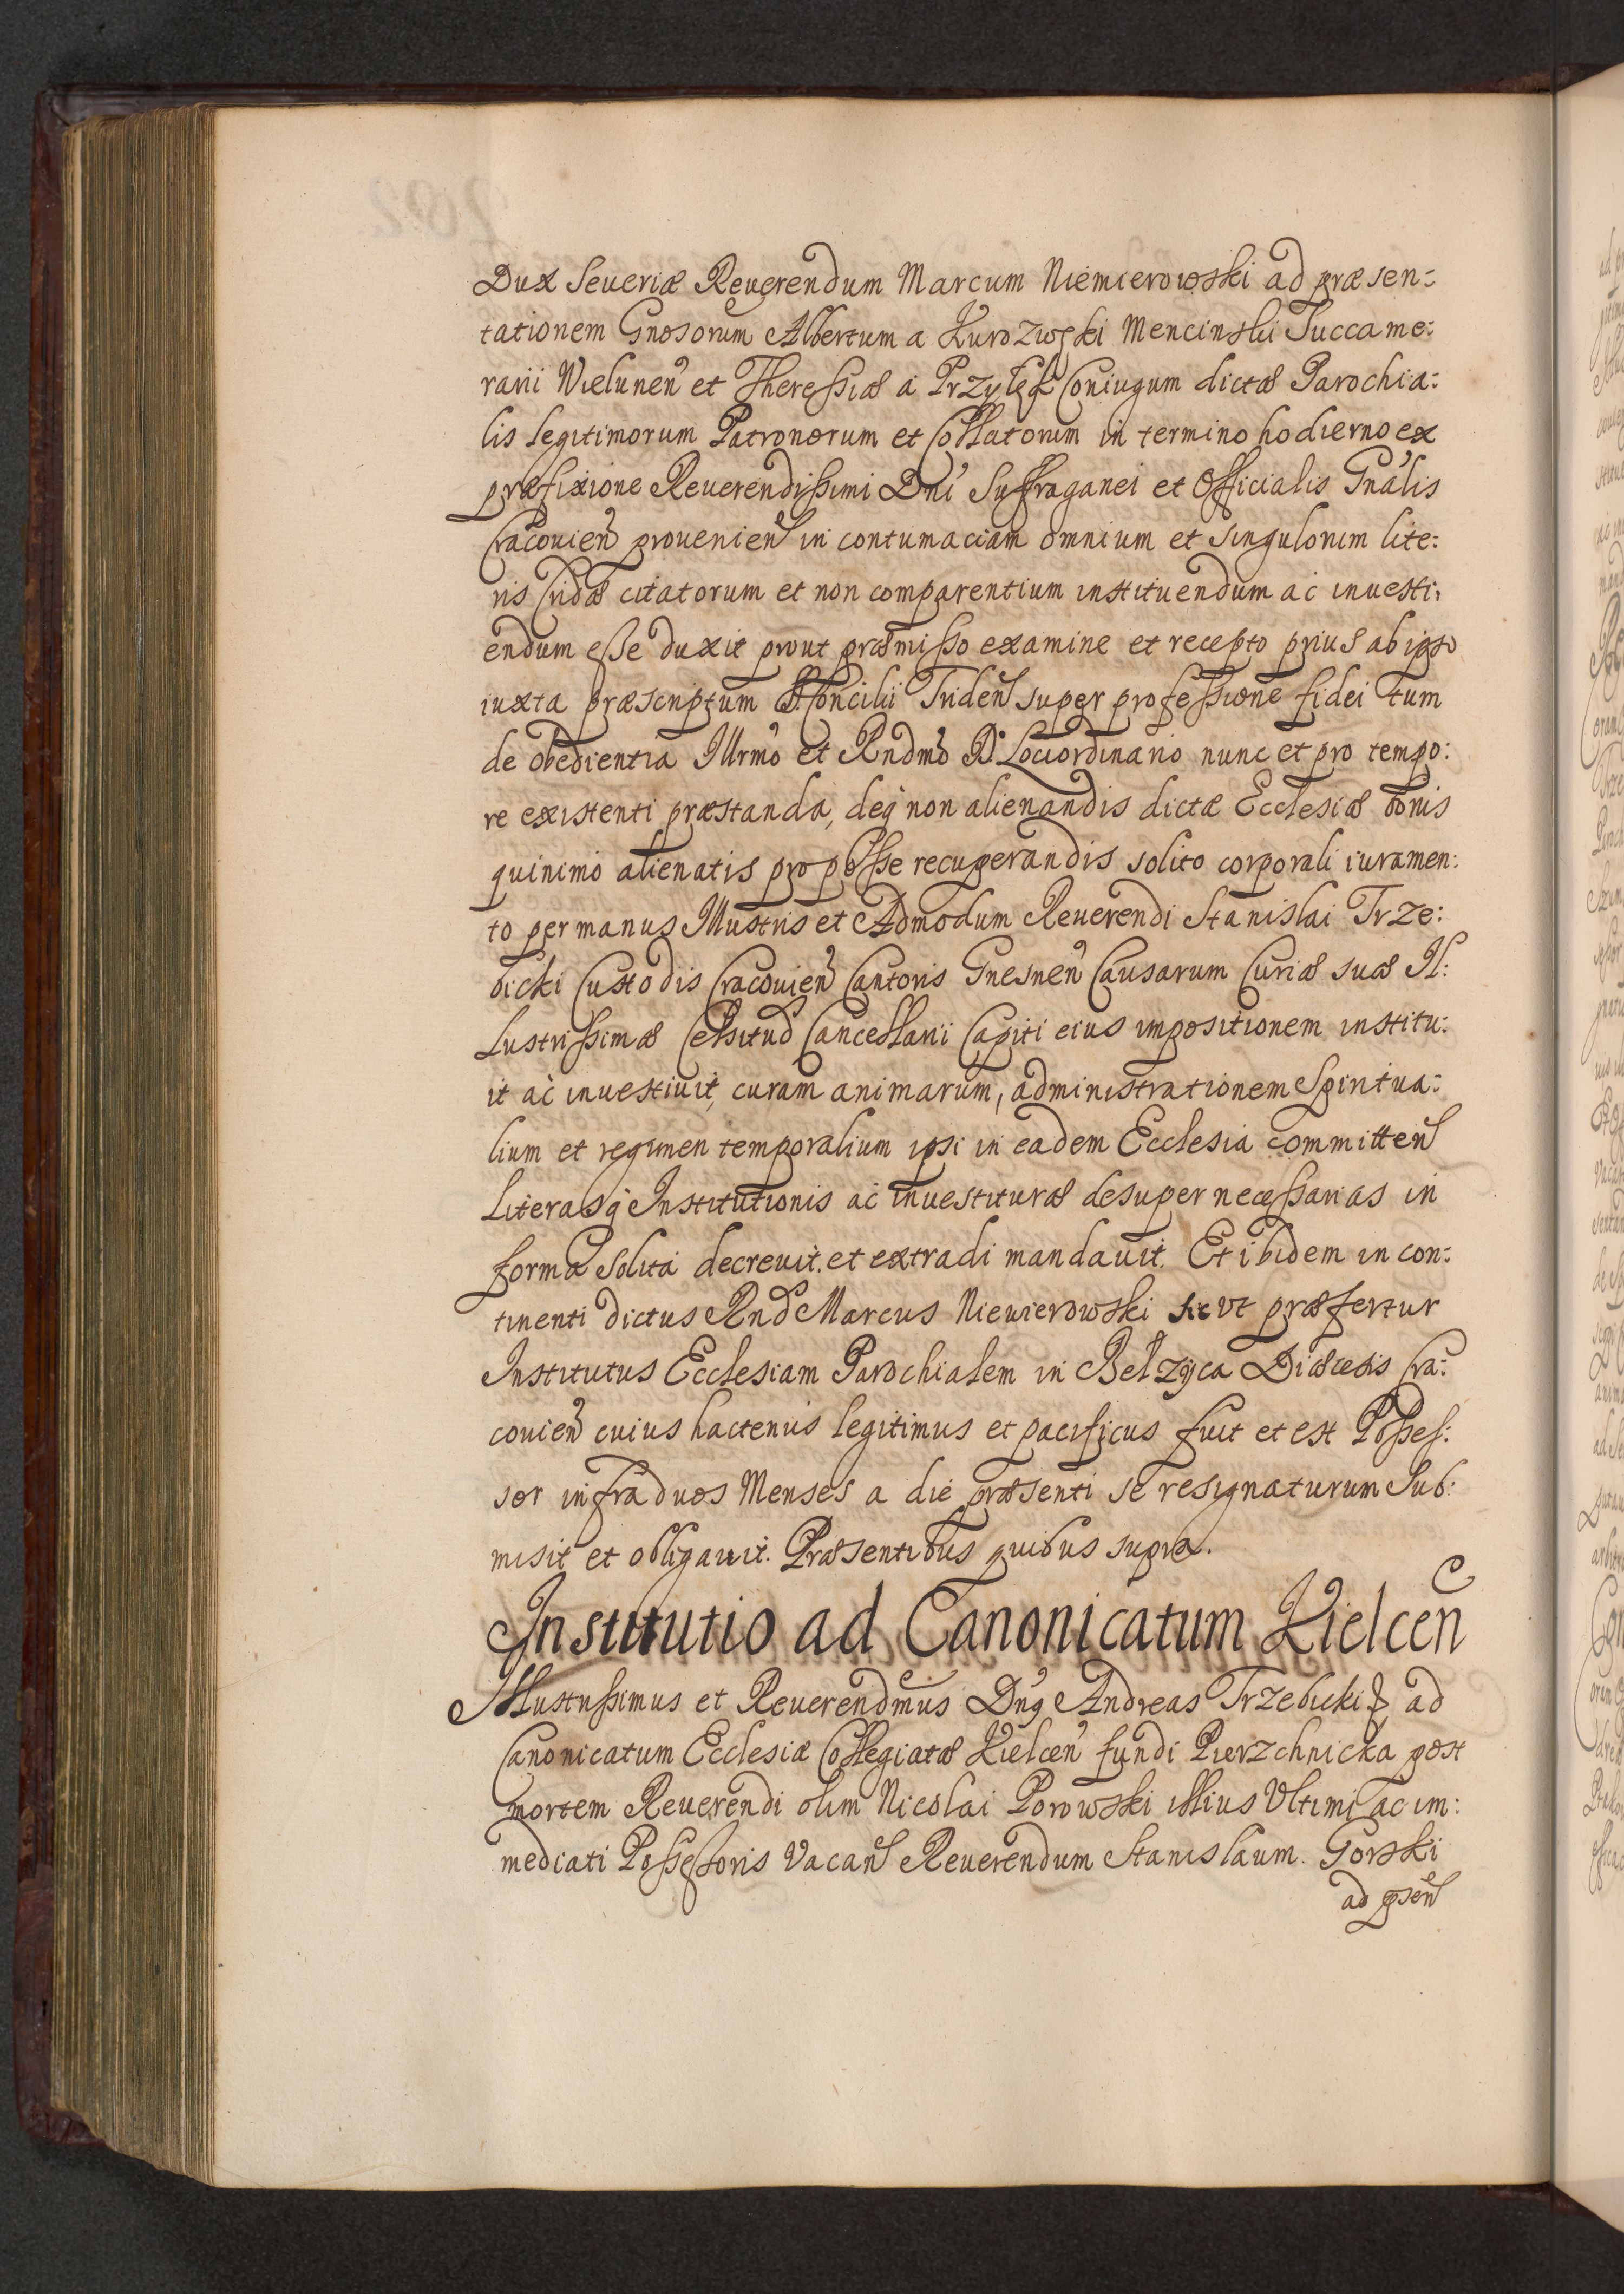 Dux Seueriæ Reuerendum Marcum Niemierowski ad præsen-
tationem Gnosorum Albertum a Kurozwęki Mencinski Succame:
rarii Wielunen et Theressiæ a Przyłęk Coniugum dictæ Parochia:
lis legitimorum Patronorum et Collatorum in termino hodierno ex
præfixione Reuerendissimi Dni Suffraganei et Officialis Gnalis
Cracouien prouenien in contumaciam omnium et singulorum lite:
ris Cridæ citatorum et non comparentium instituendum ac inuesti,
endum esse duxit prout præmisso examine et recepto prius ab ipso
iuxta præscriptum S. Concilii Triden super professione fidei tum
de obedientia Illrmo et Rndmo D. Lociordinario nunc et pro tempo:
re existenti præstanda, deq non alienandis dictæ Ecclesiæ bonis
quinimo alienatis pro posse recuperandis solito corporali iuramen:
to per manus Illustris et Admodum Reuerendi Stanislai Trze:
bicki Custodis Cracouien Cantoris Gnesnen Causarum Curiæ suæ Il:
lustrissimæ Celsitud Cancellarii Capiti eius impositionem institu:
it ac inuestiuit, curam animarum, administrationem Spiritua:
lium et regimen temporalium ipsi in eadem Ecclesia committen
Literasq Institutionis ac inuestituræ desuper necessarias in
forma solita decreuit et extradi mandauit. Et ibidem in con:
tinenti dictus Rnd Marcus Niewierowski sic vt præfertur
Institutus Ecclesiam Parochialem in Bełzyca Diæcesis Cra:
couien cuius hactenus legitimus et pacificus fuit et est Posses:
sor infra duos Menses a die præsenti se resignaturum Sub:
misit et obligauit. Præsentibus quibus supra.
Institutio ad Canonicatum Kielcen
Illustrissimus et Reuerendmus Dnus Andreas Trzebicki ad
Canonicatum Ecclesiæ Collegiatæ Kielcen fundi Pierzchnicka post
mortem Reuerendi olim Nicolai Porowski illius Vltimi ac im:
mediati Possessoris Vacan Reuerendum Stanislaum Gorski
ad psen